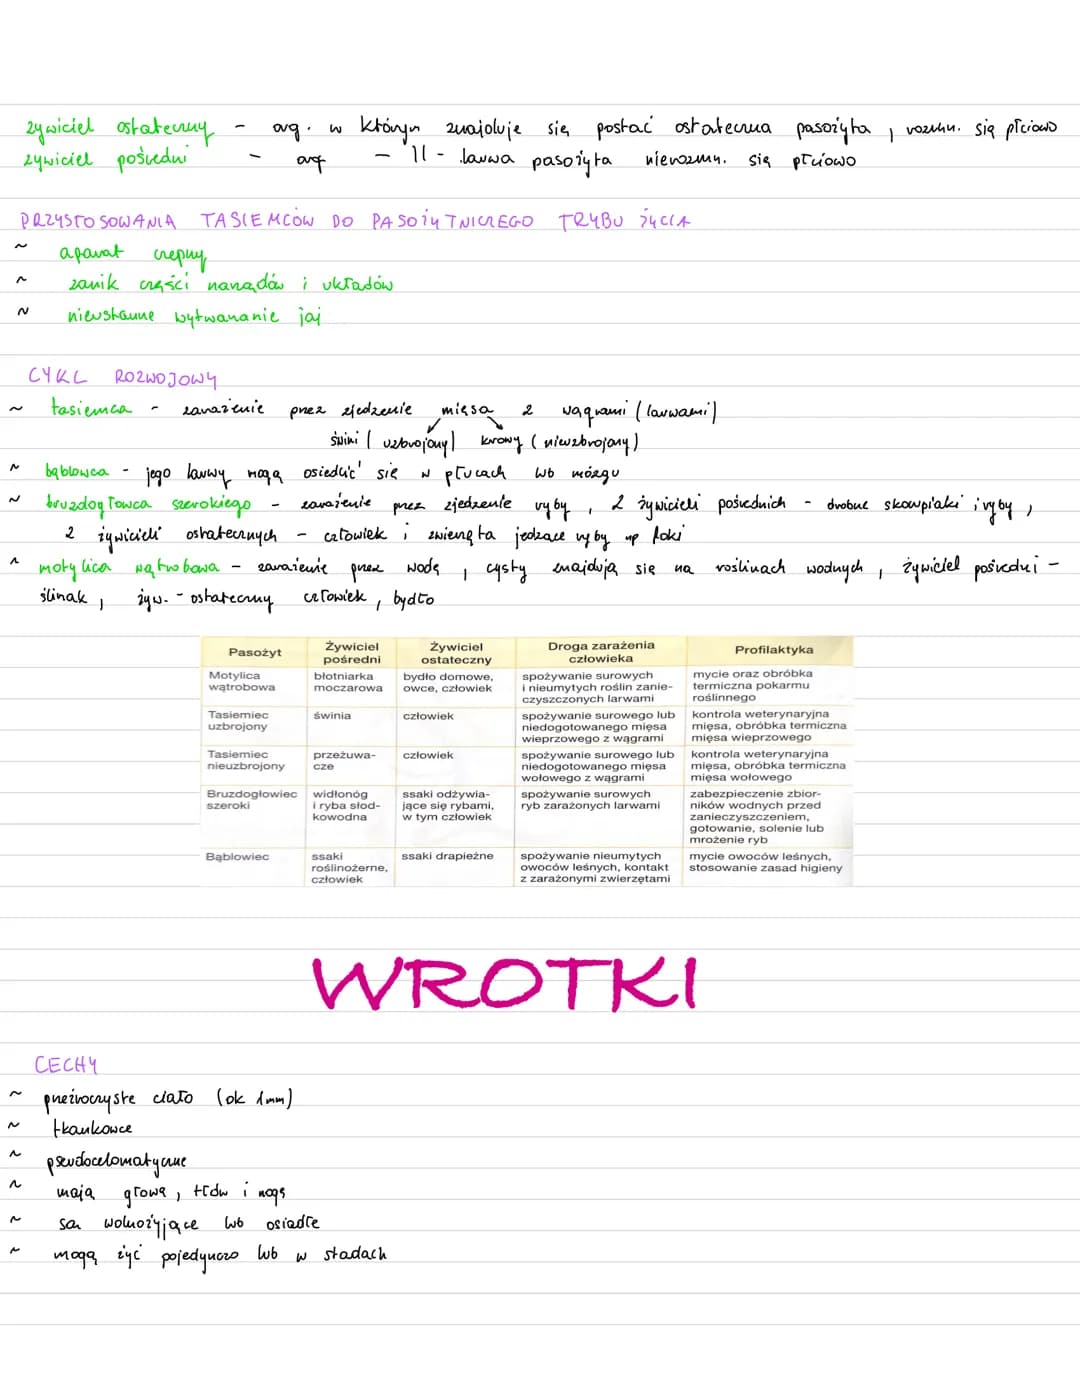 żywiciel ostateczny - org. w którym znajduje się postać ostateczna pasożyta, rozmn. się płciowo
żywiciel pośredni - org - 11 - larwa pasożyta nierozmn. się płciowo
PRZYSTOSOWANIA TASIEMCÓW DO PASOŻYTNICZEGO TRYBU ŻYCIA
~ aparat czepny
~ zanik części narządów i układów
~ nieustanne wytwananie jaj
CYKL ROZWOJOWY
~ tasiemca - zarażenie przez zjedzenie mięsa z wągrami (larwami)
świni (uzbrojony) krowy (nieuzbrojony)
~ bąblowca - jego larwy mogą osiedlić się w płucach lub mózgu
~ bruzdogłowca szerokiego - zarażenie przez zjedzenie ryby, 2 żywicieli pośrednich - drobne skorupiaki i ryby,
2 żywicieli ostatecznych - człowiek i zwierzęta jedzące ryby np foki
~ motylica wątrobowa - zarażenie przez wodę, cysty znajdują się na roślinach wodnych, żywiciel pośredni -
ślinak, żyw. - ostateczny człowiek, bydło
Pasożyt | Żywiciel pośredni | Żywiciel ostateczny | Droga zarażenia człowieka | Profilaktyka
Motylica wątrobowa | błotniarka moczarowa | bydło domowe, owce, człowiek | spożywanie surowych i nieumytych roślin zanieczyszczonych larwami | mycie oraz obróbka termiczna pokarmu roślinnego
Tasiemiec uzbrojony | świnia | człowiek | spożywanie surowego lub niedogotowanego mięsa wieprzowego z wągrami | kontrola weterynaryjna mięsa, obróbka termiczna mięsa wieprzowego
Tasiemiec nieuzbrojony | przeżuwacze | człowiek | spożywanie surowego lub niedogotowanego mięsa wołowego z wągrami | kontrola weterynaryjna mięsa, obróbka termiczna mięsa wołowego
Bruzdogłowiec szeroki | widłonóg i ryba słodkowodna | ssaki odżywiające się rybami, w tym człowiek | spożywanie surowych ryb zarażonych larwami | zabezpieczenie zbiorników wodnych przed zanieczyszczeniem, gotowanie, solenie lub mrożenie ryb
Bąblowiec | ssaki roślinożerne, człowiek | ssaki drapieżne | spożywanie nieumytych owoców leśnych, kontakt z zarażonymi zwierzętami | mycie owoców leśnych, stosowanie zasad higieny
WROTKI
CECHY
~ przeźroczyste ciało (ok 1mm)
~ tkankowce
~ pseudocelomatyczne
~ mają głowę, tłów i nogę
~ są wolnożyjące lub osiadłe
~ mogą żyć pojedynczo lub w stadach